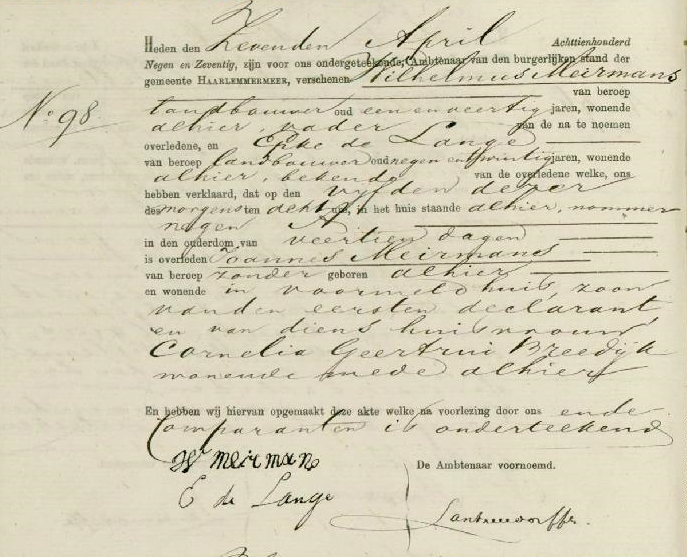 Heden den Zevenden April Achttienhonderd
Negen en Zeventig, zijn voor ons ondergeteekende, Ambtenaar van den burgerlijken stand der
gemeente HAARLEMMERMEER, verschenen Wilhelmus Meirmans
van beroep
No 98.
landbouwer oud een en veertig jaren, wonende
alhier, vader van de na te noemen
overledene, en Epke de Lange
van beroep landbouwer oud negen en twintig jaren, wonende
alhier, bekende van de overledene welke, ons
hebben verklaard, dat op den vijfden dezer
des morgens ten acht ure, in het huis staande alhier, nommer
negen A
in den ouderdom van veertien dagen
is overleden Joannes Meirmans
van beroep zonder geboren alhier
en wonende in voormeld huis, zoon
van den eersten declarant
en van diens huisvrouw
Cornelia Geertrui Breedijk
wonende mede alhier
En hebben wij hiervan opgemaakt deze akte welke na voorlezing door ons en de
Comparanten is onderteekend
W meirmans
E de Lange
De Ambtenaar voornoemd.